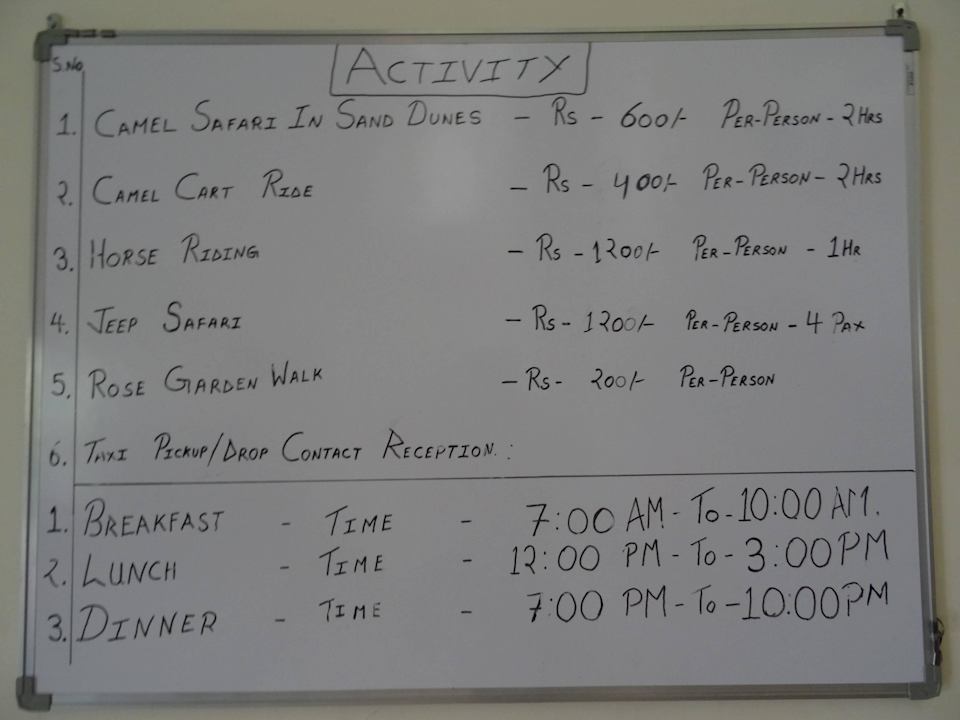 ACTIVITY
S.No
1. CAMEL SAFARI IN SAND DUNES - Rs - 600/- PER-PERSON - 2HRS
2. CAMEL CART RIDE - Rs - 400/- PER-PERSON - 2HRS
3. HORSE RIDING - Rs - 1200/- PER-PERSON - 1HR
4. JEEP SAFARI - Rs - 1200/- PER-PERSON - 4 PAX
5. ROSE GARDEN WALK - Rs - 200/- PER-PERSON
6. TAXI PICKUP/DROP CONTACT RECEPTION. :
1. BREAKFAST - TIME - 7:00 AM - To - 10:00 AM.
2. LUNCH - TIME - 12:00 PM - To - 3:00 PM
3. DINNER - TIME - 7:00 PM - To - 10:00 PM